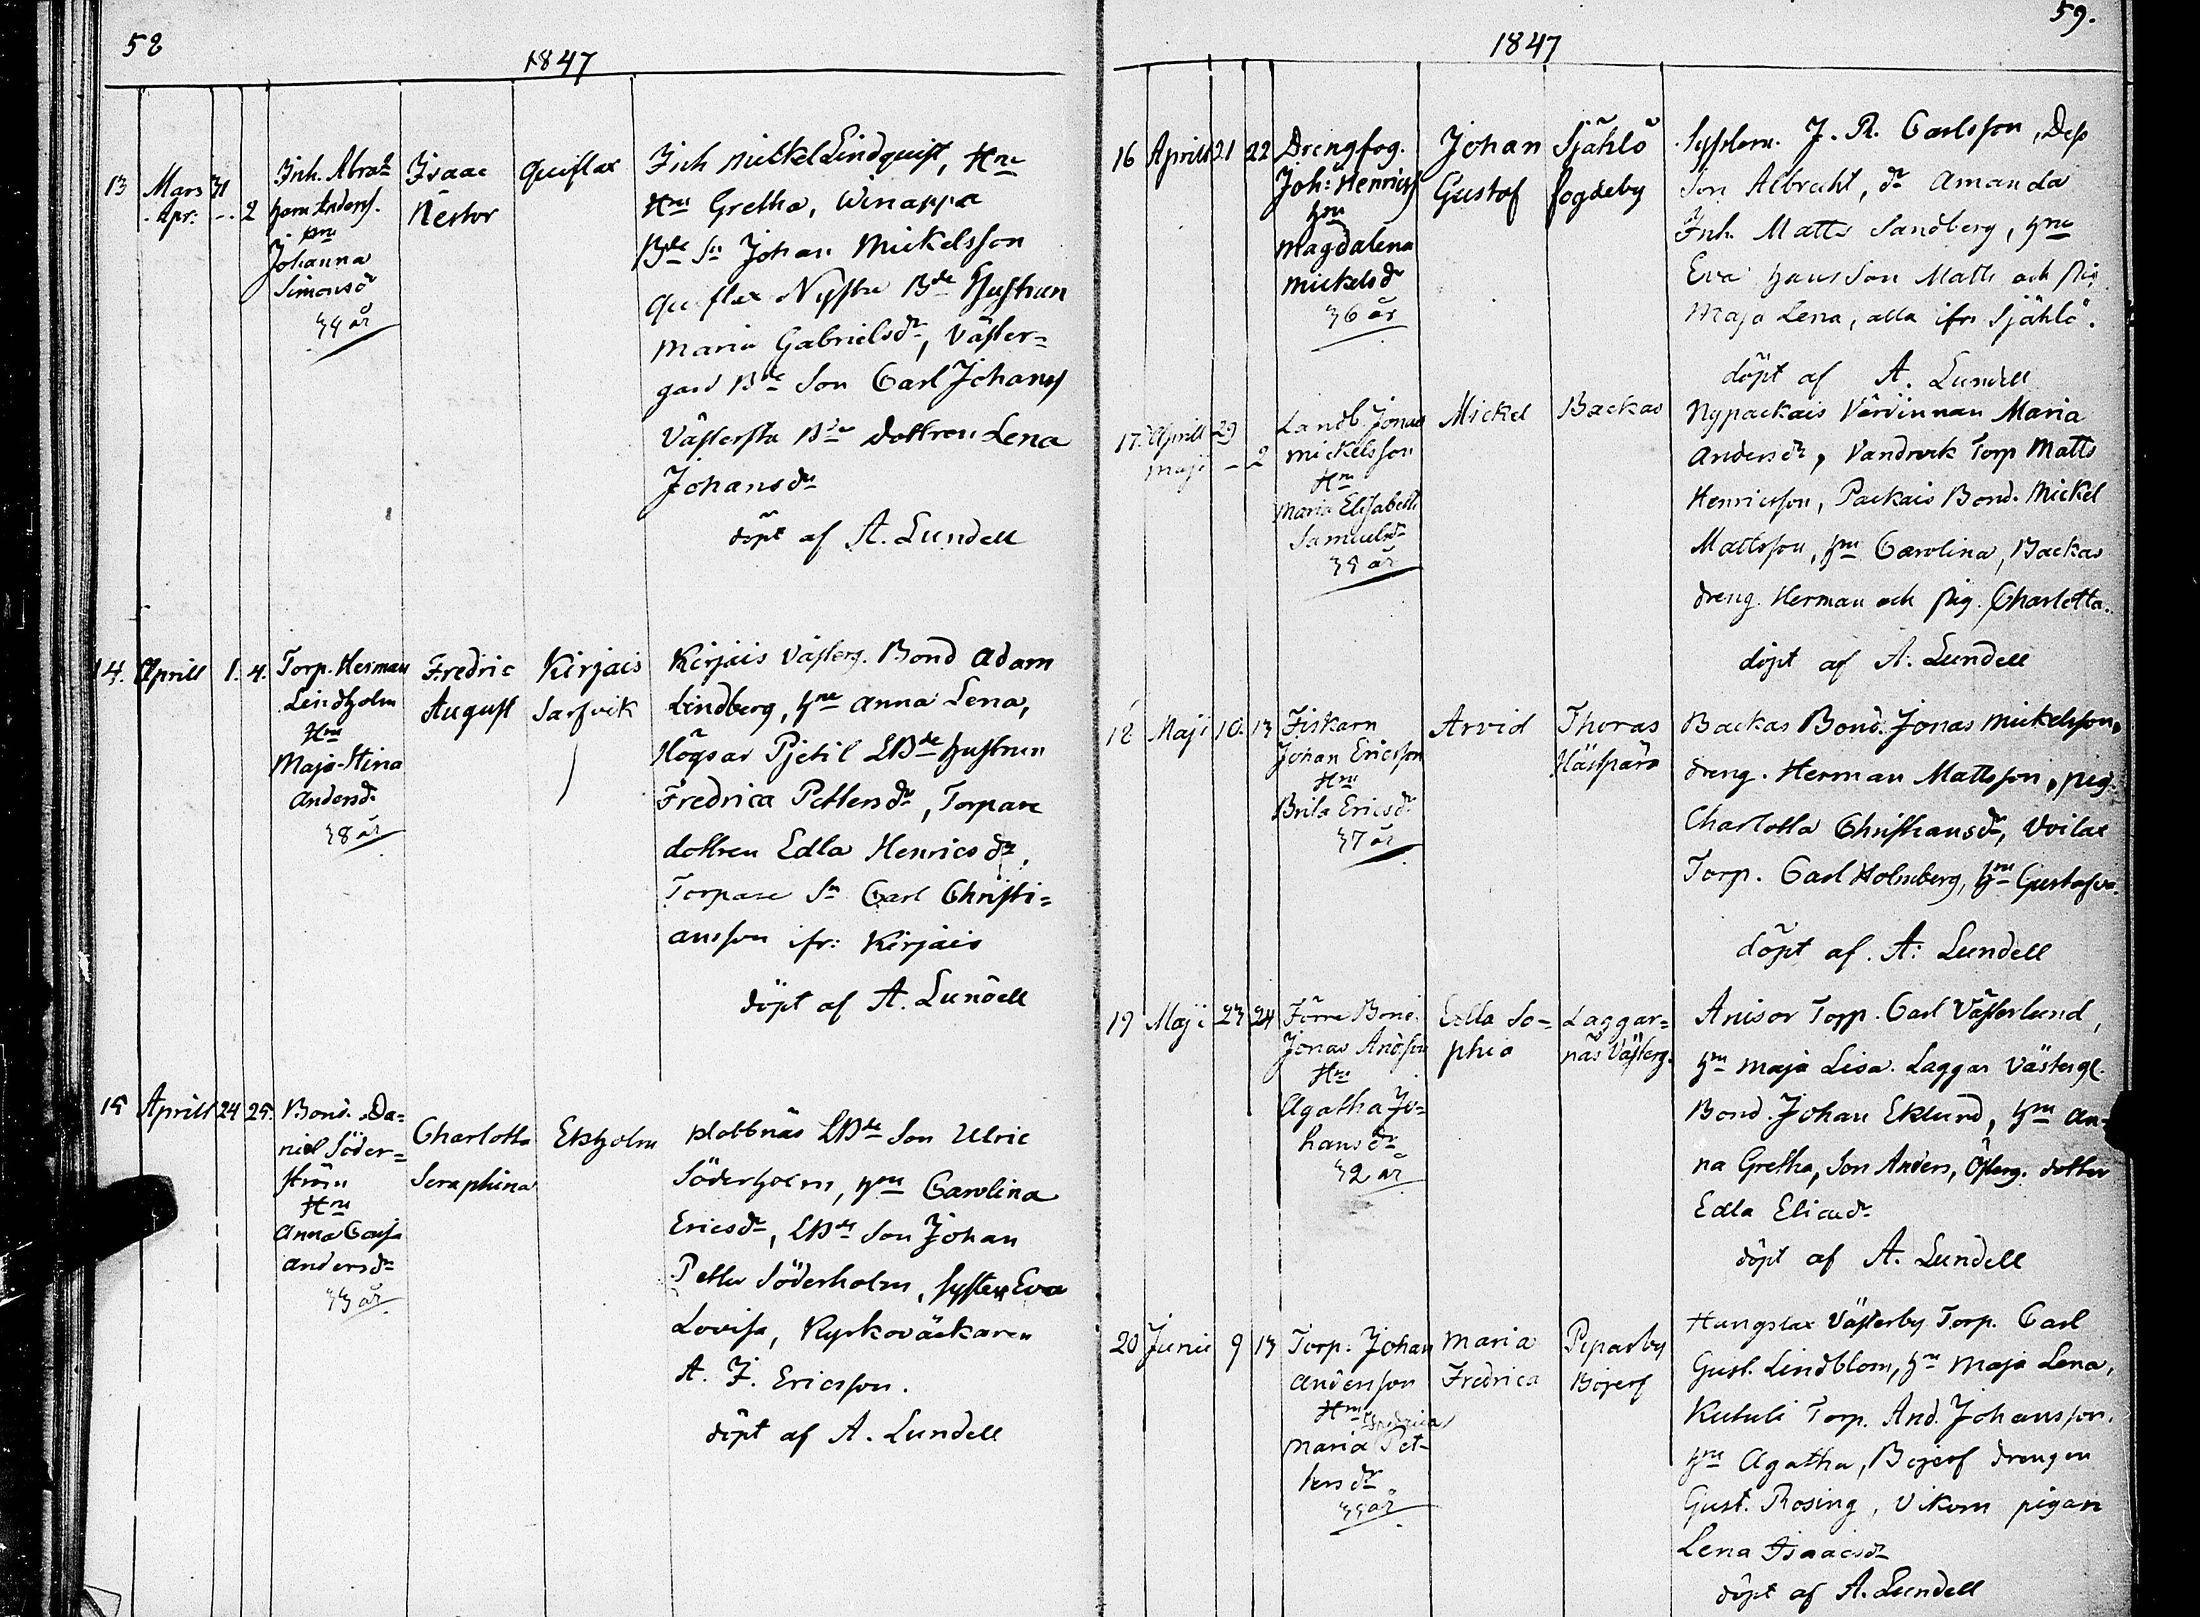 58
1847
13 Mars 31
Apr: - 2
Inh. Abra-
ham Anders.
Hru
Johanna
Simonsdr
34 år
Isaac
Nestor
Quiflax
Inh Mickel Lindquist, Hru
Hru Gretha, Winappa
Bde Sn Johan Mickelsson
Quiflax Nystu Bde Hustrun
Maria Gabrielsdr, Väster=
gard Bde Son Carl Johans
Västersta Bde dottren Lena
Johansdr
döpt af A. Lundell
14. Aprill 1. 4.
Torp. Herman
Lindholm
Hru
Maja Stina
Andersdr
38 år
Fredric
August
Kirjais
Sarfvik
Kirjais Västerg. Bond Adam
Lindberg, hru Anna Lena,
Högsar Pjetil LBde hustrun
Fredrica Pettersdr, Torpare
dottren Edla Henricsdr,
Torpare Sn Carl Christi=
ansson ifr: Kirjais
döpt af A. Lundell
15 Aprill 24 25.
Bond. Da=
niel Söder=
ström
Hru
Anna Cajsa
Andersdr
33 år
Charlotta
Seraphina
Ekholm
Klobbnäs LBde Son Ulric
Söderholm, hru Carolina
Ericsdr, LBde Son Johan
Petter Söderholm, Syster Eva
Lovisa, Kyrkoväktaren
A. F. Ericsson.
döpt af A. Lundell
59.
1847
16 Aprill 21 22
Drengfog.
Joh: Henrics
hru
Magdalena
Mickelsdr
36 år
Johan
Gustaf
Själö
fogdeby
Sysslom. J. R. Carlsson, Dess
Son Albrecht, dr Amanda
Inh. Matts Sandberg, hru
Eva hans Son Matts och pig
Maja Lena, alla ifrn Själö.
döpt af A. Lundell
17. Aprill 29
Maji - 2
Landb. Jonas
Mickelsson
Hru
Maria Elisabeth
Samuelsdr
35 år
Mickel
Backas
Nypackais Värdinnan Maria
Andersdr, Vandrock Torp Matts
Henricsson, Packais Bond. Mickel
Mattsson, hru Carolina, Backas
dreng. Herman och pig. Charlotta.
döpt af A. Lundell
18 Maji 10. 13
Fiskarn
Johan Ericsson
Hru
Brita Ericsdr
37 år
Arvid
Thoras
Hästpärs
Backas Bond. Jonas Mickelsson,
dreng. Herman Mattsson, pig.
Charlotta Christiansdr, Voilax
Torp. Carl Holmberg, hru Gustafva
döpt af A: Lundell
19 Maji 23 24
Förre Bond.
Jonas Andsson
Hru
Agatha Jo=
hansdr
32 år
Edla So=
phia
Laggar=
näs Västerg.
Anisor Torp. Carl Västerlund,
hru Maja Lisa. Laggar Västergl.
Bond. Johan Eklund, hru An=
na Gretha, Son Anders, Österg. dotter
Edla Eliaedr
döpt af A. Lundell
20 Junii 9 13
Torp. Johan
Andersson
Hru Fredrica
Maria Pet=
tersdr
35 år
Maria
Fredrica
Piparby
Böjerf
Hungslax Västerby Torp. Carl
Gust. Lindblom, hru Maja Lena,
Kutuli Torp. And. Johansson,
hru Agatha, Bojerf drengen
Gust. Rosing, Vikom pigan
Lena Isaacsdr
döpt af A. Lundell